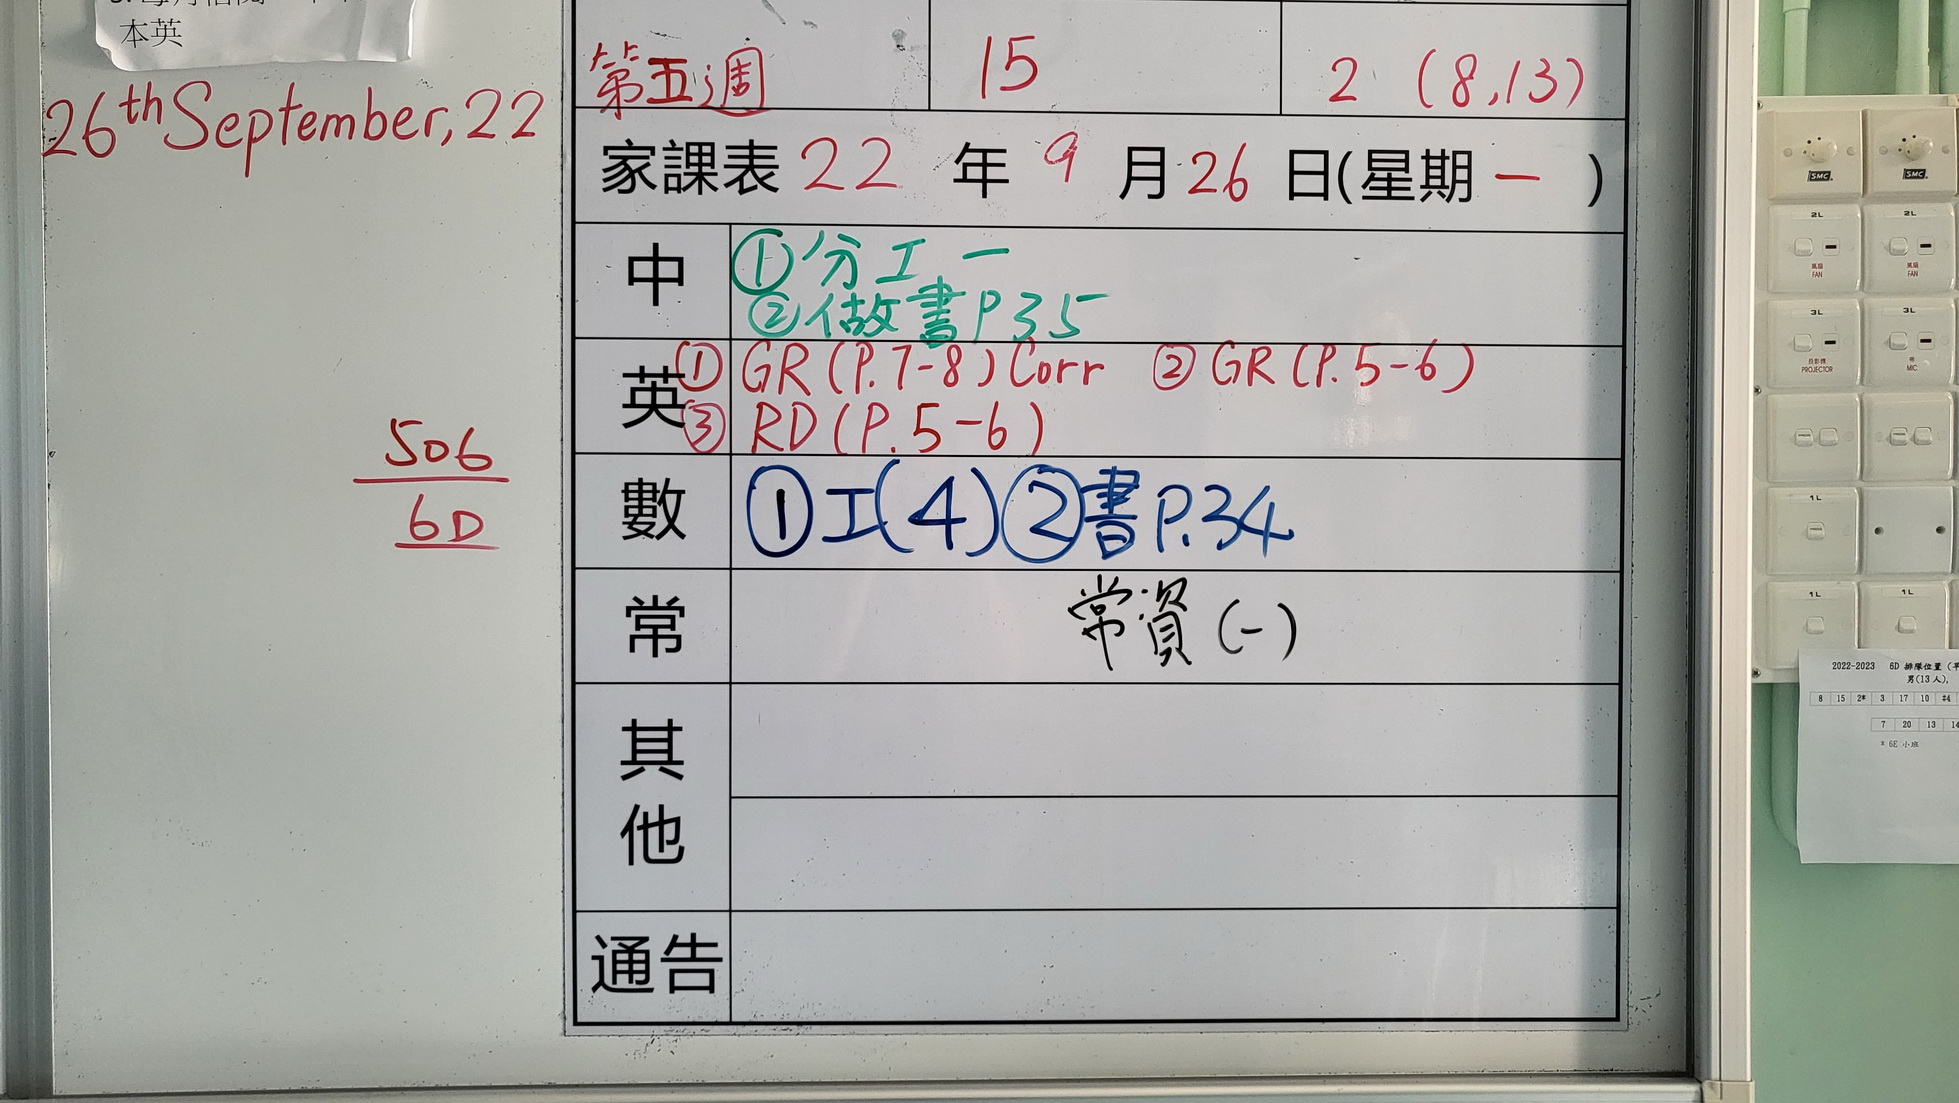 本英
26th September, 22
第五週
15
2 (8,13)
家課表 22 年 9 月 26 日(星期一 )
中
①分工一
②做書P35
英
① GR(P.7-8)Corr ② GR(P.5-6)
③ RD(P.5-6)
506
6D
數
①工(4)②書P.34
常
常資(一)
其他
通告
SMC
SMC
2L
2L
風扇
FAN
風扇
FAN
3L
3L
投影機
PROJECTOR
MIC
1L
1L
1L
2022-2023 6D 排隊位置
男(13人),
8 15 2* 3 17 10 #4
7 20 13 14
* 6E 小班